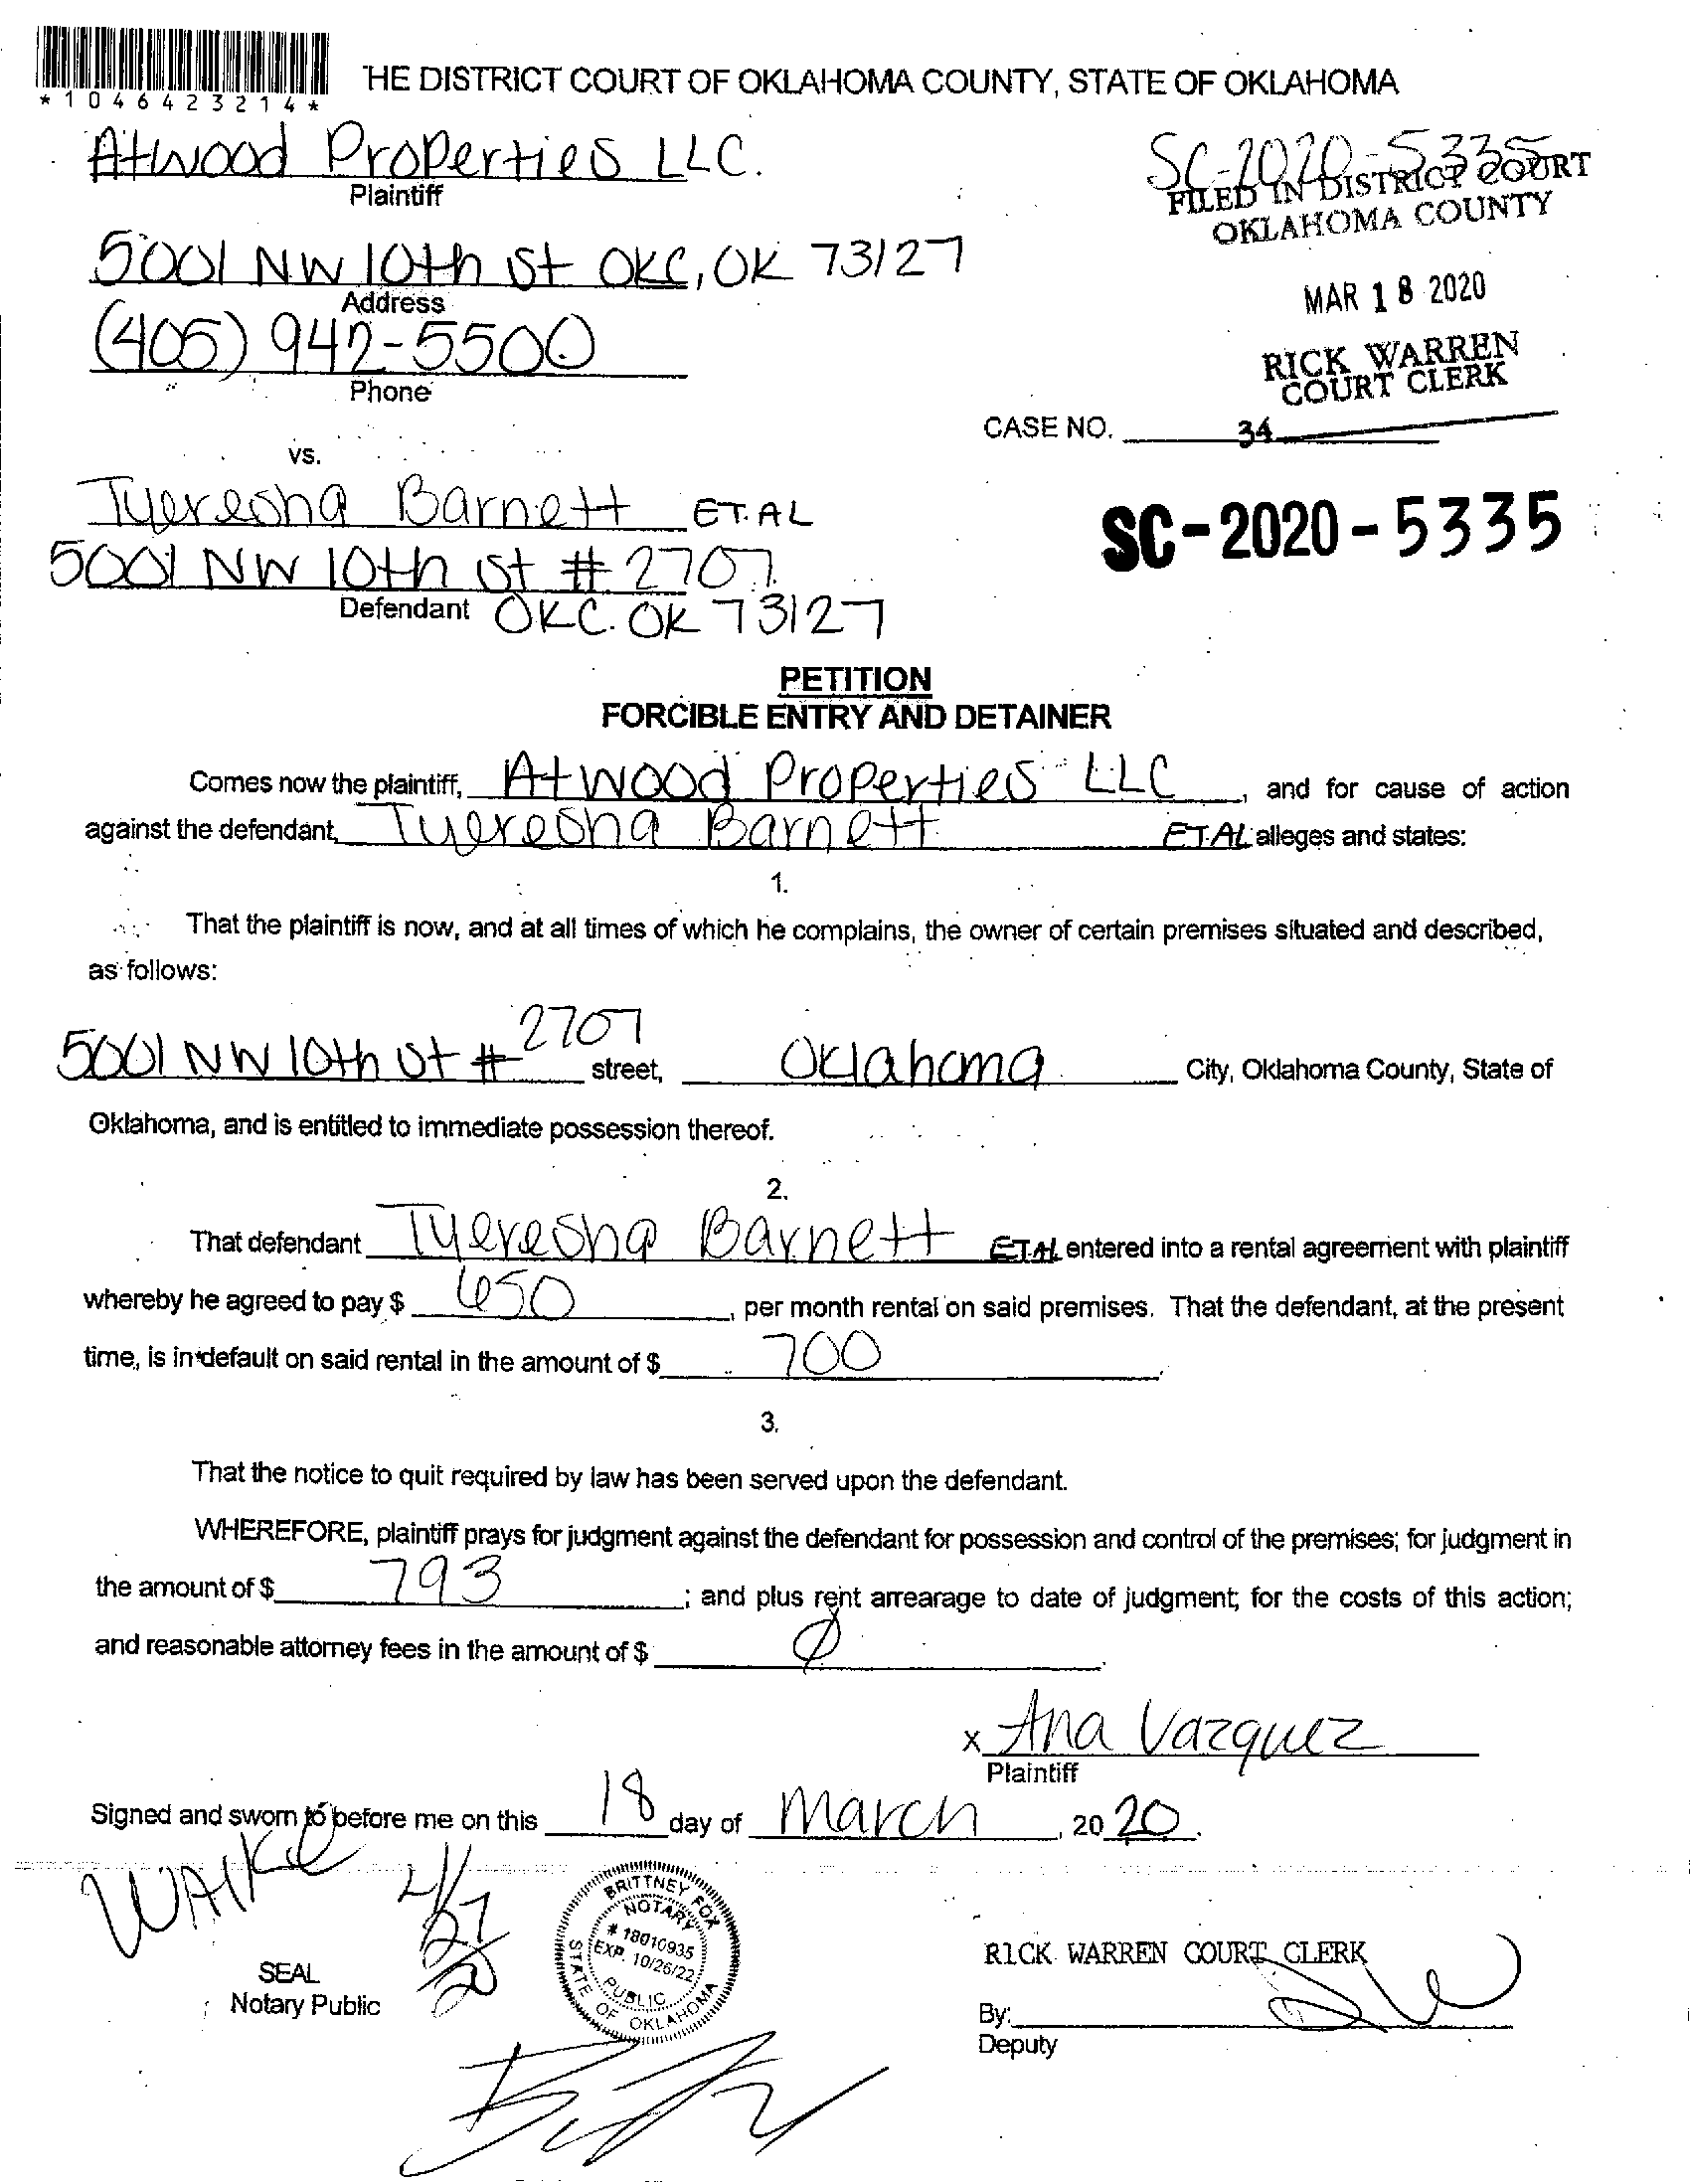 *1046423214*
THE DISTRICT COURT OF OKLAHOMA COUNTY, STATE OF OKLAHOMA
Atwood Properties LLC.
Plaintiff
SC-2020-5335
FILED IN DISTRICT COURT
OKLAHOMA COUNTY
5001 NW 10th St OKC, OK 73127
Address
MAR 18 2020
(405) 942-5500
Phone
RICK WARREN
COURT CLERK
CASE NO.
34
vs.
Tyeresha Barnett ET.AL
5001 NW 10th St # 2707
Defendant OKC. OK 73127
SC-2020-5335
PETITION
FORCIBLE ENTRY AND DETAINER
Comes now the plaintiff, Atwood Properties LLC, and for cause of action
against the defendant, Tyeresha Barnett ET.AL alleges and states:
1.
That the plaintiff is now, and at all times of which he complains, the owner of certain premises situated and described,
as follows:
5001 NW 10th St # 2707 street, Oklahoma City, Oklahoma County, State of
Oklahoma, and is entitled to immediate possession thereof.
2.
That defendant Tyeresha Barnett ET.AL entered into a rental agreement with plaintiff
whereby he agreed to pay $ 650, per month rental on said premises. That the defendant, at the present
time, is in default on said rental in the amount of $ 700.
3.
That the notice to quit required by law has been served upon the defendant.
WHEREFORE, plaintiff prays for judgment against the defendant for possession and control of the premises; for judgment in
the amount of $ 793; and plus rent arrearage to date of judgment; for the costs of this action;
and reasonable attorney fees in the amount of $ Ø.
x Ana Vazquez
Plaintiff
Signed and sworn to before me on this 18 day of March, 20 20.
BRITTNEY FOX
NOTARY
# 18010935
EXP. 10/26/22
PUBLIC
STATE OF OKLAHOMA
SEAL
Notary Public
RICK WARREN COURT CLERK
By:
Deputy